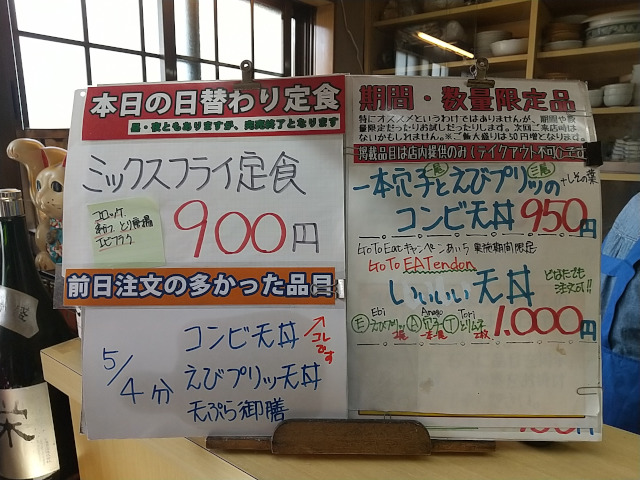 本日の日替わり定食
昼・夜ともありますが、完売終了となります
ミックスフライ定食
コロッケ
エビフライ
900円
前日注文の多かった品目
5/4分
コンビ天丼
コレです
えびプリッ天丼
天ぷら御膳
期間・数量限定品
特にオススメというわけではありませんが、期間や数
量限定だったりお試しだったりします。次回ご来店時は
ないかもしれません。※ご飯大盛りは50円増となります。
掲載品目は店内提供のみ(テイクアウト不可)
一本穴子とえびプリッの
一尾
三尾
+しその葉
コンビ天丼 950円
GoToEatキャンペーンあいち 実施期間限定
GoTo EATendon
いいいい天丼
となたでも
注文可!!
Ebi
Anago
Tori
Eえびプリッ A穴子 Tとりムネ
2尾
一本
2枚
1,000円
栄